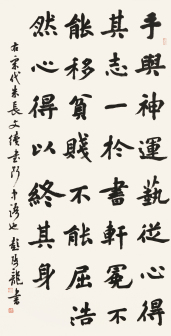 手與神運藝從心得
其志一於書軒冕不
能移貧賤不能屈浩
然心得以終其身
右宋代朱長文續書斷中語也 彭龍書